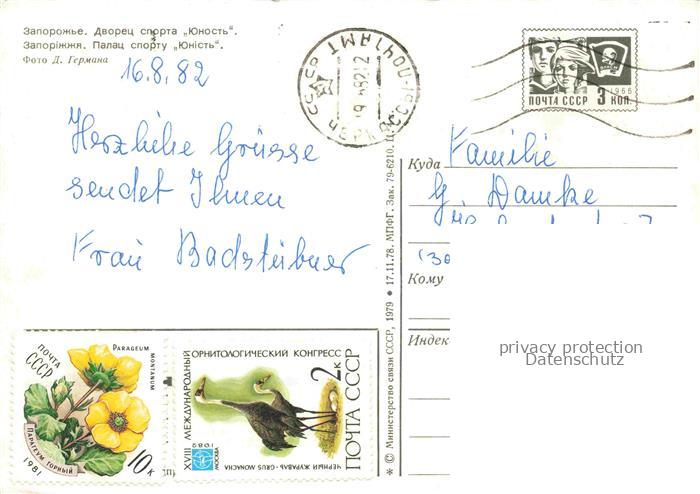 Запорожье. Дворец спорта „Юность“.
Запоріжжя. Палац спорту „Юність“.
Фото Д. Германа
16.8.82
Herzliche Grüsse
sendet Ihnen
Frau Badstübner
СССР ПОЧТАМТ
ЧЕРКАССЫ
ПОЧТА СССР 3 КОП.
1966
Куда Familie
G. Damke
Кому
Индек
privacy protection
Datenschutz
* © Министерство связи СССР, 1979 • 17.11.78. МПФГ. Зак. 79-6210.
ПОЧТА
СССР
PARAGEUM
MONTANUM
ПАРАГЕУМ ГОРНЫЙ
1981
10к
XVIII МЕЖДУНАРОДНЫЙ ОРНИТОЛОГИЧЕСКИЙ КОНГРЕСС
МОСКВА
1982
ЧЕРНЫЙ ЖУРАВЛЬ · GRUS MONACHA
ПОЧТА СССР 2к